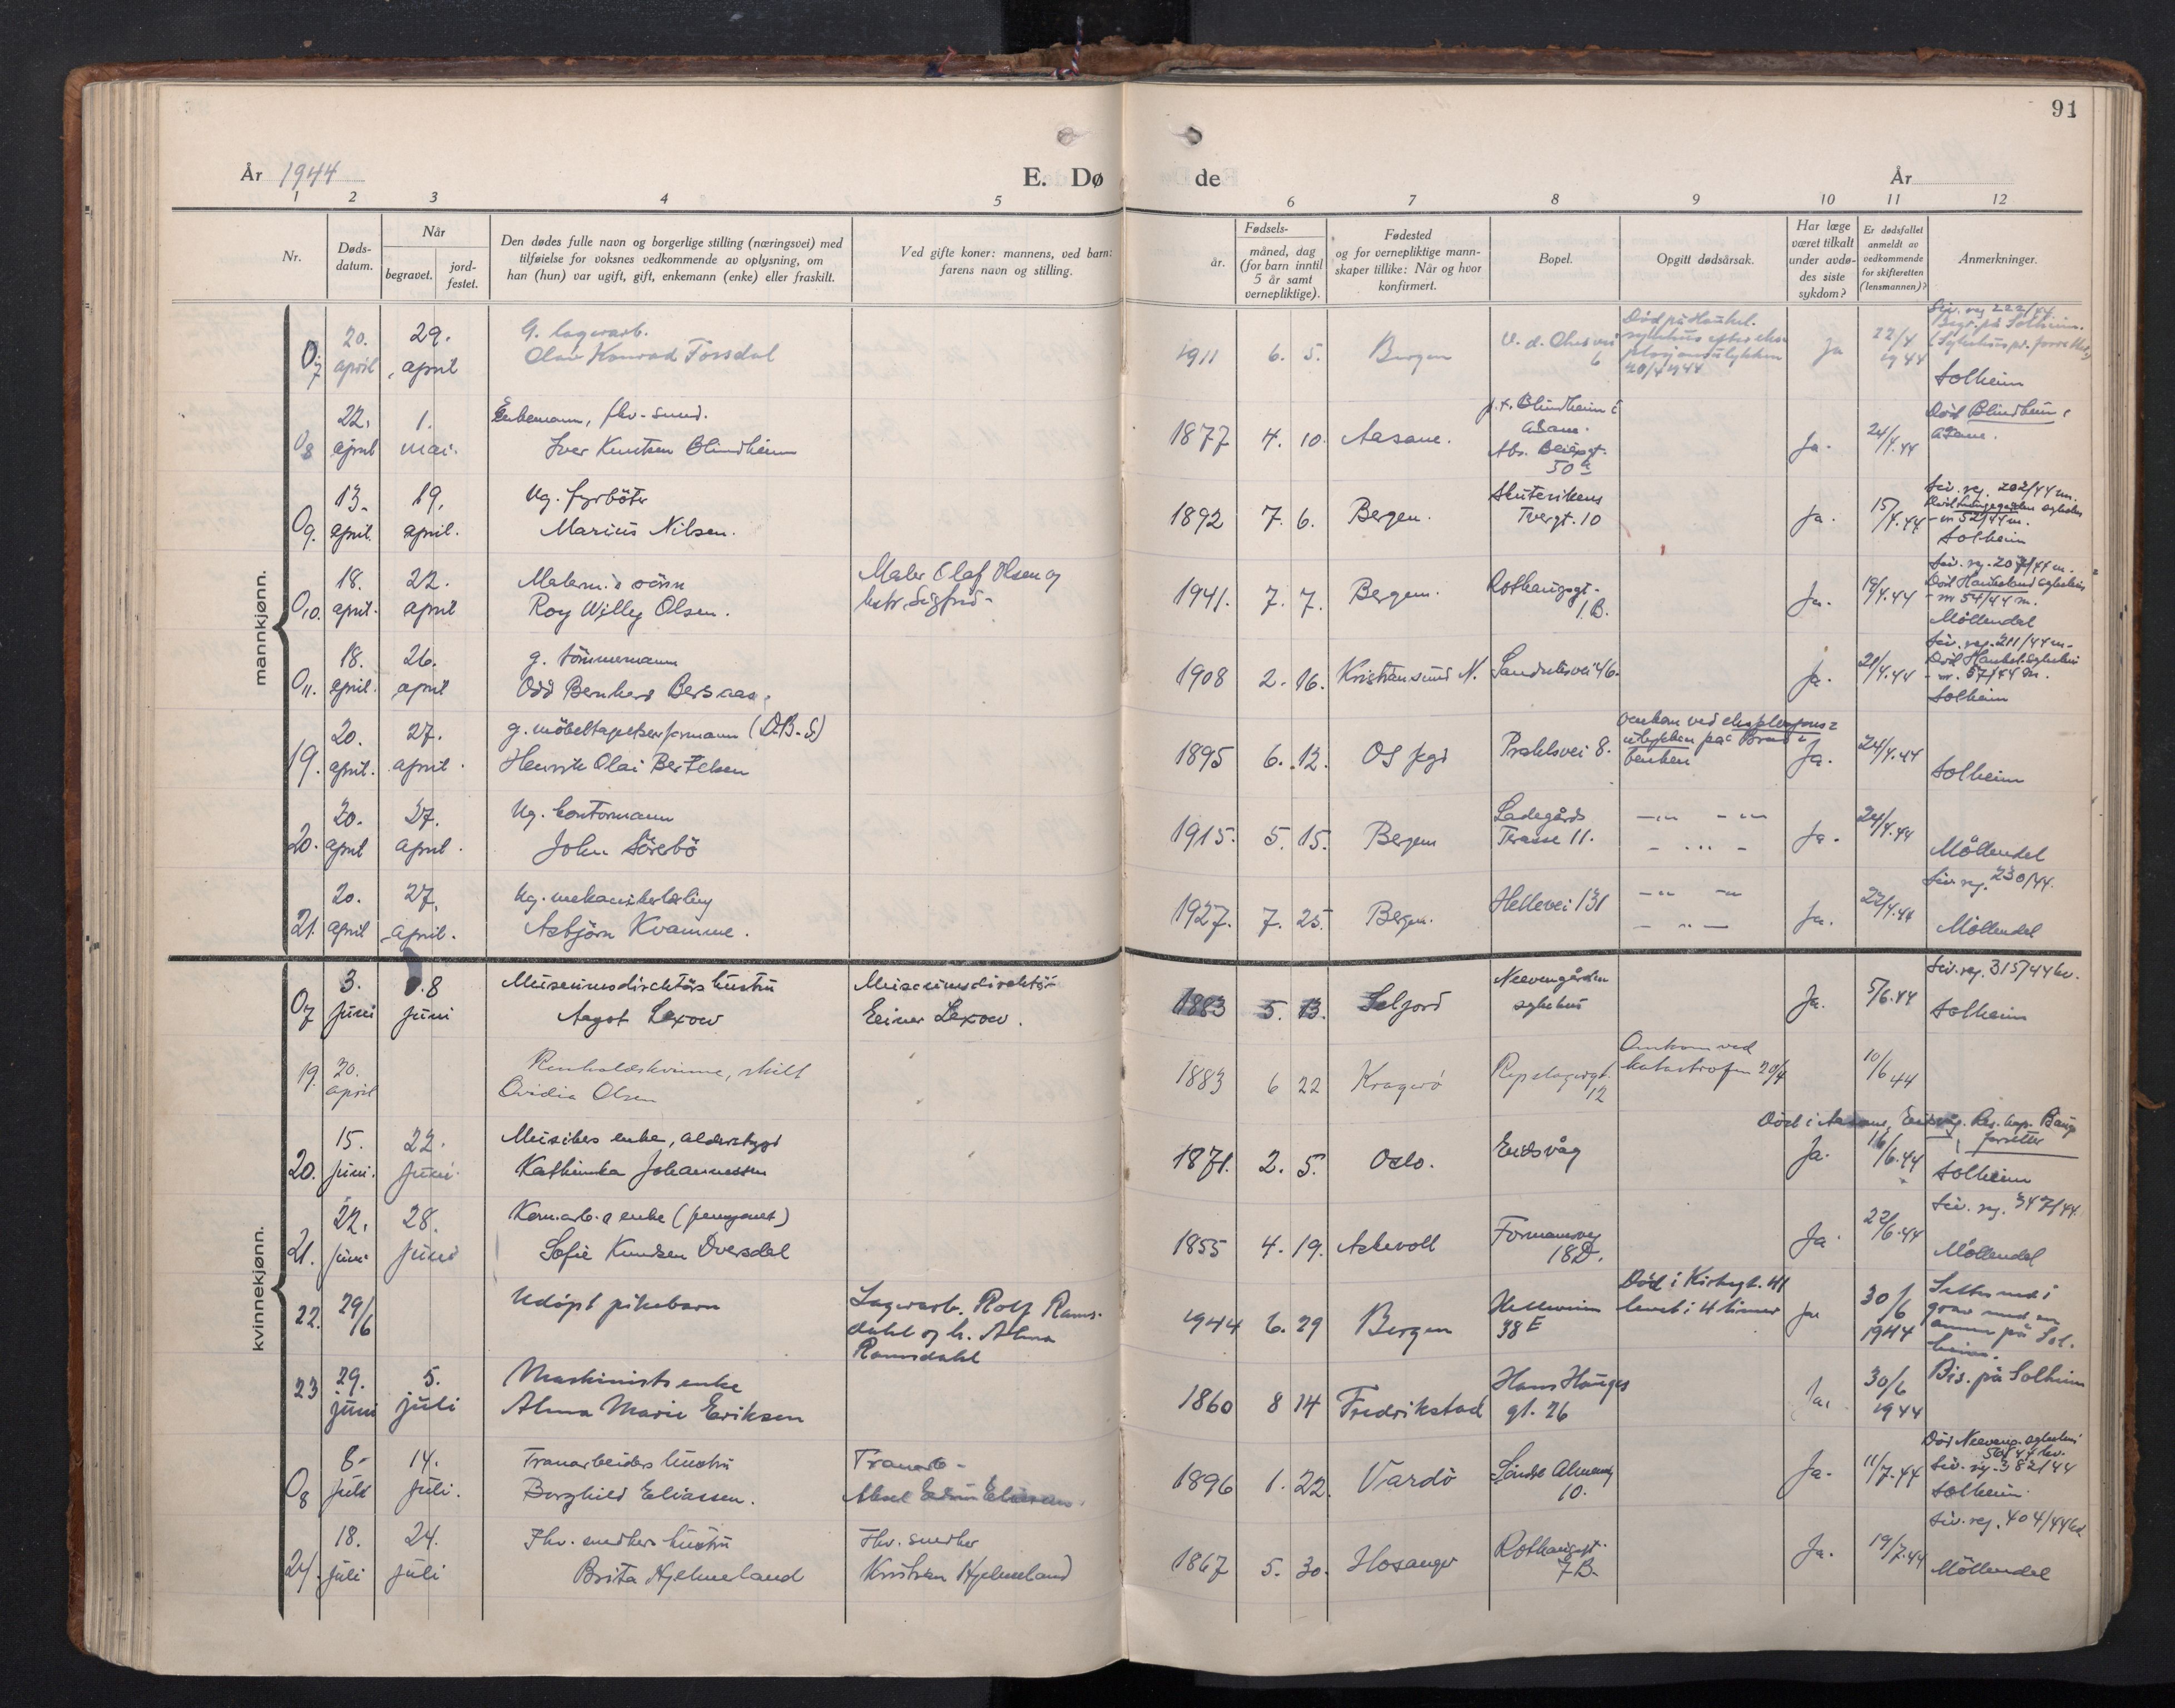 91
År 1944
E. Dø
de
År
1 2 3 4 5 6 7 8 9 10 11 12
Nr.
Døds-
datum.
Når
begravet.
jord-
festet.
Den dødes fulle navn og borgerlige stilling (næringsvei) med
tilføielse for voksnes vedkommende av oplysning, om
han (hun) var ugift, gift, enkemann (enke) eller fraskilt.
Ved gifte koner: mannens, ved barn:
farens navn og stilling.
Fødsels-
år.
måned, dag
(for barn inntil
5 år samt
vernepliktige).
Fødested
og for vernepliktige mann-
skaper tillike: Når og hvor
konfirmert.
Bopel.
Opgitt dødsårsak.
Har læge
været tilkalt
under avdø-
des siste
sykdom?
Er dødsfallet
anmeldt av
vedkommende
for skifteretten
(lensmannen)?
Anmerkninger.
mannkjønn.
O7 20. april 29. april
G. lagerarb.
Olav Konrad Torsdal
1911 6. 5. Bergen
6
Død på Haukel.
20/4 1944
Ja
22/4 1944
Liv. reg. 222/44
Begr. på Solheim.
Solheim
O8 22. april 1. mai.
Enkemann, fhv. smed.
Iver Knutsen Blindheim
1877 4. 10. Aasane.
p.t. Blindheim i
Aasane.
50a
Ja. 24/4.44
Død Blindheim i
Aasane.
O9. 13. april. 19. april.
Ug. fyrböter
Marius Nilsen.
1892 7. 6. Bergen.
Skutevikens
Tvergt. 10
Ja. 15/4.44
Liv. reg. 202/44 m.
Död Lungegaarden sykehus
- nr 52/44 m.
Solheim
O10. 18. april. 22. april
Malerm.s sönn
Roy Willy Olsen.
Maler Olaf Olsen og
hstr. Sigfrid-
1941. 7. 7. Bergen.
Rothaugsgt.
1.B.
Ja. 19/4.44
Liv. reg. 207/44 m.
Död Haukeland sykehus
- nr 54/44 m.
Möllendal
O11. 18. april. 26. april
g. tömmermann
Odd Bernhard Bersaas.
1908 2. 16. Kristiansund N. Sandviksvei 46.
Ja. 21/4.44
Liv. reg. 211/44 m.
Död Haukel. sykehus
- nr. 57/44 m.
Solheim
19. 20. april. 27. april.
g. möbeltapetserformann (D.B.S)
Henrik Olai Bertelsen
1895 6. 12. Os pgd Prahlsvei 8.
omkom ved eksplosjons-
ulykken på Brad-
benken
Ja. 24/4.44
Solheim
20. 20. april 27. april.
Ug. kontormann
John Sörebö
1915. 5. 15. Bergen
Ladegårds
Terasse 11.
-"- -"-
- ... -
Ja. 24/4.44
Möllendal
21. 20. april 27. april.
Ug. mekanikerlærling
Asbjörn Kvamme.
1927. 7. 25. Bergen. Hellevei 131
-"- -"-
- " -
Ja. 22/4.44
Liv. reg. 230/44.
Möllendal
kvinnekjønn.
O7 3. juni 8 juni
Museumsdirektörs hustru
Aagot Lexow
Museumsdirektör
Einar Lexow.
1883 5. 13. Seljord
Neevengården
sykehus
Ja. 5/6.44
Liv. reg. 315/44 kv.
Solheim
19. 20. april
Renholdskvinne, skilt
Ovidia Olsen
1883 6 22 Kragerö
Repslagergt.
12
Omkom ved
katastrofen 20/4
10/6 44
20. 15. juni. 22. juni.
Musikers enke, alderstrygd
Kathinka Johannessen
1871. 2. 5. Oslo. Eidsvåg
Ja. 16/6.44
Död i Aasane, Eidsvåg. Res. kap. Bauge
forretter
Solheim
21. 22. juni 28. juni
Kom.arb.s enke (pensjonert)
Sofie Knudsen Dversdal
1855 4. 19. Askevoll
Formannsvei
18D.
Ja 22/6.44
Liv. reg. 347/44.
Möllendal
22. 29/6
Udöpt pikebarn
Lagerarb. Rolf Rams-
dahl og h. Alma
Ramsdahl
1944 6. 29 Bergen
Helleveien
38 E
Död i Kirkegt. 41
levet i 4 timer
Ja
30/6 1944
Settes ned i
grav med en
annen på Sol-
heim.
23 29. juni 5. juli
Maskinists enke
Alma Marie Eriksen
1860 8 14 Fredrikstad
Hans Hauges
gt. 26
Ja.
30/6 1944
Bis. på Solheim
O8 8. juli 14. juli.
Tranarbeiders hustru
Borghild Eliassen.
Tranarb-
Aksel Edvin Eliassen.
1896 1. 22. Vardö
Söndre Almenng
10.
Ja. 11/7.44
Död Neeveng. sykehus
50/44 kv.
Liv. reg. 382/44
Solheim.
24. 18. juli 24. juli
Fhv. snedkers hustru
Brita Hjelmeland
Fhv. snedker
Kristian Hjelmeland
1867 5. 30. Hosanger
Rothaugsgt.
7B.
Ja. 19/7.44
Liv. reg. 404/44 kv.
Möllendal